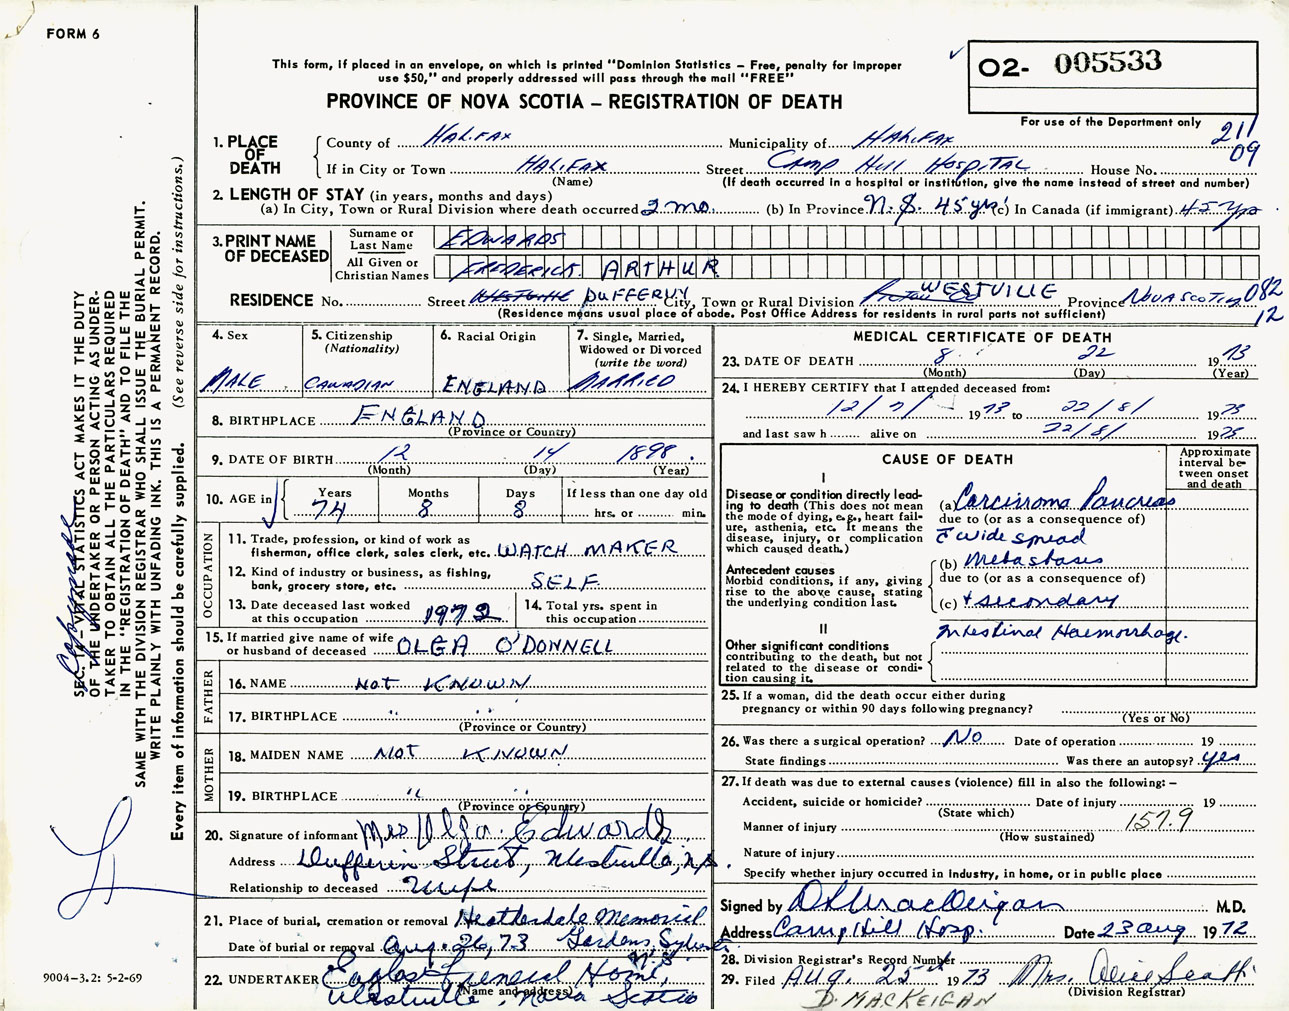 FORM 6
This form, if placed in an envelope, on which is printed "Dominion Statistics – Free, penalty for improper
use $50," and properly addressed will pass through the mail "FREE"
PROVINCE OF NOVA SCOTIA – REGISTRATION OF DEATH
O2- 005533
For use of the Department only
211
09
1. PLACE OF DEATH
County of HALIFAX Municipality of HALIFAX
If in City or Town HALIFAX Street CAMP HILL HOSPITAL House No.
(Name) (If death occurred in a hospital or institution, give the name instead of street and number)
2. LENGTH OF STAY (in years, months and days)
(a) In City, Town or Rural Division where death occurred 2 mo. (b) In Province N.S. 45 yrs (c) In Canada (if immigrant) 45 yrs
3. PRINT NAME OF DECEASED
Surname or Last Name EDWARDS
All Given or Christian Names FREDERICK ARTHUR
RESIDENCE No. Street DUFFERIN City, Town or Rural Division WESTVILLE Province NOVA SCOTIA 082
(Residence means usual place of abode. Post Office Address for residents in rural parts not sufficient) 12
4. Sex
MALE
5. Citizenship
(Nationality)
CANADIAN
6. Racial Origin
ENGLAND
7. Single, Married,
Widowed or Divorced
(write the word)
MARRIED
8. BIRTHPLACE ENGLAND
(Province or Country)
9. DATE OF BIRTH 12 14 1898.
(Month) (Day) (Year)
10. AGE in
Years Months Days If less than one day old
74 8 8 hrs. or min.
OCCUPATION
11. Trade, profession, or kind of work as
fisherman, office clerk, sales clerk, etc. WATCH MAKER
12. Kind of industry or business, as fishing,
bank, grocery store, etc. SELF
13. Date deceased last worked
at this occupation 1972
14. Total yrs. spent in
this occupation
15. If married give name of wife
or husband of deceased OLGA O'DONNELL
FATHER
16. NAME NOT KNOWN
17. BIRTHPLACE " "
(Province or Country)
MOTHER
18. MAIDEN NAME NOT KNOWN
19. BIRTHPLACE " "
(Province or Country)
20. Signature of informant Mrs Olga Edwards
Address Dufferin Street, Westville, N.S.
Relationship to deceased Wife
21. Place of burial, cremation or removal Heatherdale Memorial
Date of burial or removal Aug. 26, 73 Gardens, Sylvester
N.S.
22. UNDERTAKER Funeral Home,
(Name and address)
Westville, Nova Scotia
MEDICAL CERTIFICATE OF DEATH
23. DATE OF DEATH 8 22 1973
(Month) (Day) (Year)
24. I HEREBY CERTIFY that I attended deceased from:
12/7/ 1973 to 22/8/ 1973
and last saw h alive on 22/8/ 1973
CAUSE OF DEATH
Approximate
interval be-
tween onset
and death
I
Disease or condition directly lead-
ing to death (This does not mean
the mode of dying, e.g., heart fail-
ure, asthenia, etc. It means the
disease, injury, or complication
which caused death.)
(a) Carcinoma Pancreas
due to (or as a consequence of)
c̄ wide spread
Antecedent causes
Morbid conditions, if any, giving
rise to the above cause, stating
the underlying condition last.
(b) Metastases
due to (or as a consequence of)
(c) + secondary
II
Other significant conditions
contributing to the death, but not
related to the disease or condi-
tion causing it.
Intestinal Haemorrhage.
25. If a woman, did the death occur either during
pregnancy or within 90 days following pregnancy?
(Yes or No)
26. Was there a surgical operation? No Date of operation 19
State findings Was there an autopsy? yes
27. If death was due to external causes (violence) fill in also the following:–
Accident, suicide or homicide? Date of injury 19
(State which)
Manner of injury 157.9
(How sustained)
Nature of injury
Specify whether injury occurred in industry, in home, or in public place
Signed by D MacKeigan M.D.
Address Camp Hill Hosp. Date 23 Aug 1972
28. Division Registrar's Record Number
29. Filed Aug. 25th 1973 Mrs. Alice Scott
(Division Registrar)
D. MACKEIGAN
SEC. 17 – VITAL STATISTICS ACT MAKES IT THE DUTY
OF THE UNDERTAKER OR PERSON ACTING AS UNDER-
TAKER TO OBTAIN ALL THE PARTICULARS REQUIRED
IN THE "REGISTRATION OF DEATH" AND TO FILE THE
SAME WITH THE DIVISION REGISTRAR WHO SHALL ISSUE THE BURIAL PERMIT.
WRITE PLAINLY WITH UNFADING INK. THIS IS A PERMANENT RECORD.
Every item of information should be carefully supplied. (See reverse side for instructions.)
9004–3.2: 5-2-69